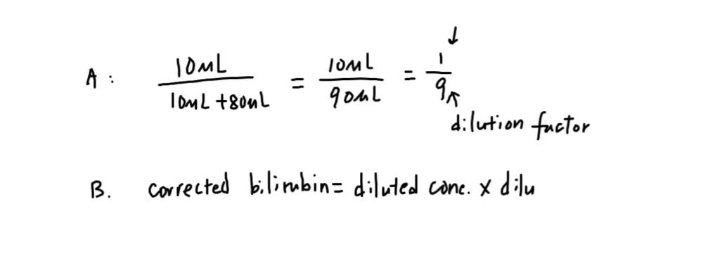 A : 10mL / 10mL +80mL = 10mL / 90mL = 1 / 9
dilution factor
B. corrected bilirubin= diluted conc. x dilu